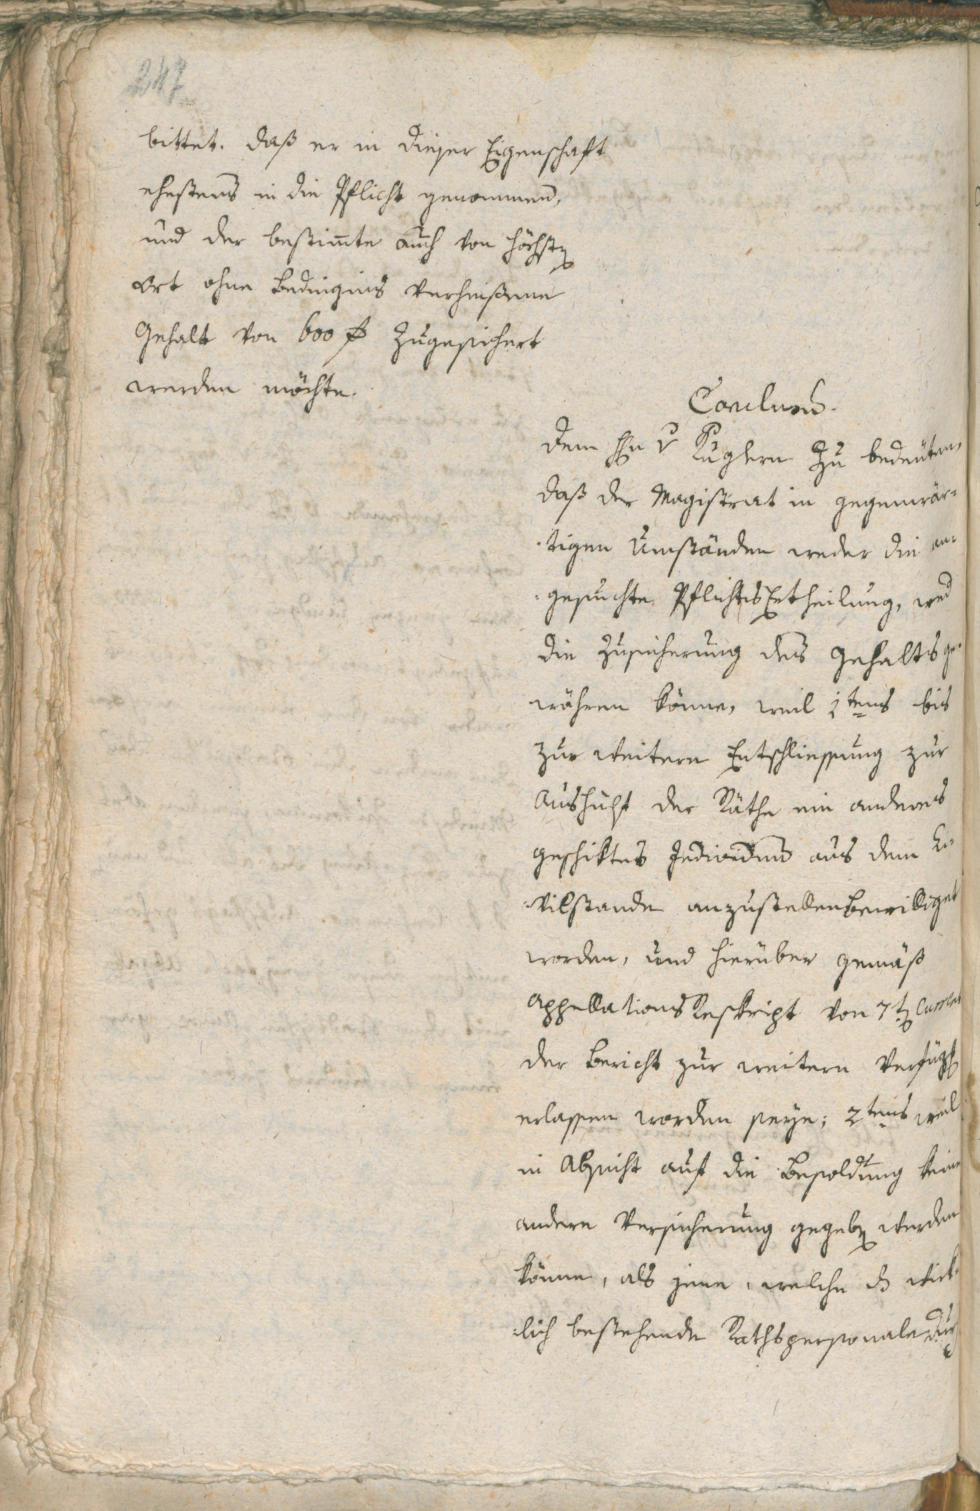 247
bittet. daß er in dieser Eigenschaft
ehestens in die Pflicht genommen,
und der bestimte auch von höchst
Ort ohne Bedingnis verheißene
Gehalt von 600 f zugesichert
werden möchte.
Conclusum.
Dem Hn v Kuglern zu bedeuten,
daß der Magistrat in gegenwär-
tigen Umständen weder die an-
gesuchte Pflichts Ertheilung, wed
die Zusicherung des Gehalts ge-
währen könne, weil 1tens bis
zur weitern Entschliessung zur
Aushülf der Räthe ein anderes
geschiktes Individum aus dem Ci-
vilstande anzustellen bewilliget
worden, und hierüber gemäß
Appellations Reskript von 7t
der Bericht zur weitern Verfügg
erlassen worden seye; 2tens weil
in Absicht auf die Besoldung keine
andere Versicherung gegeb werden
könne, als jene, welche d wirk-
lich bestehende Rathspersonale